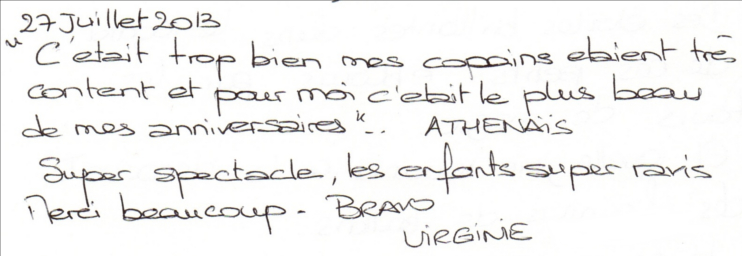 27 Juillet 2013
"C'etait trop bien mes copains etaient très
content et pour moi c'etait le plus beau
de mes anniversaires".. ATHENAÏS
Super spectacle, les enfants super ravis
Merci beaucoup - BRAVO
VIRGINIE